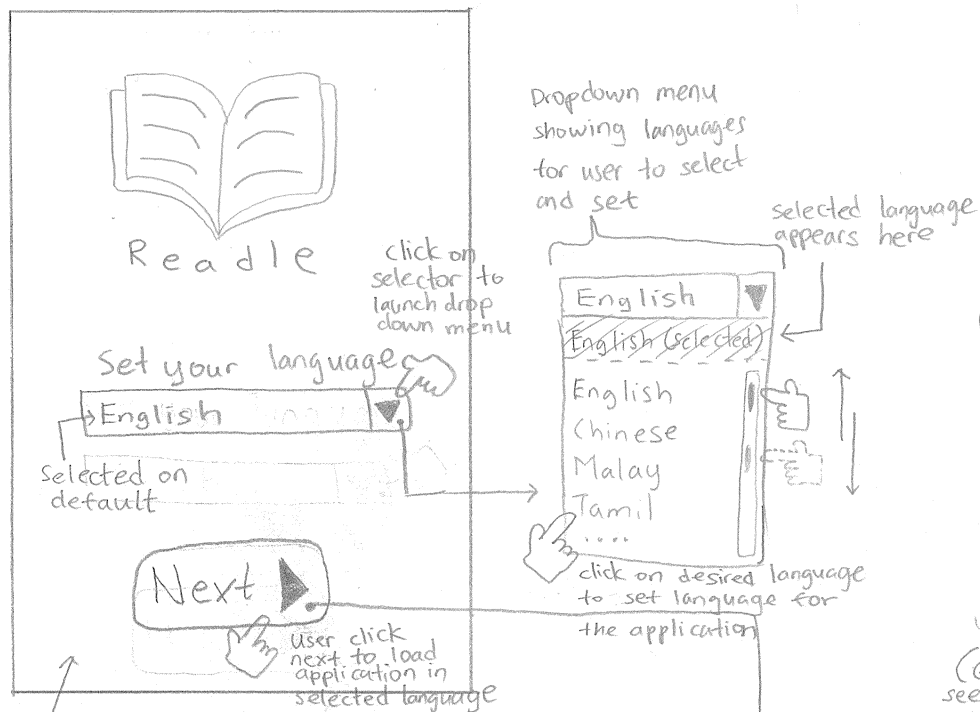 Readle
click on
selector to
launch drop
down menu
Set your language
English
selected on
default
Next
user click
next to load
application in
selected language
Dropdown menu
showing languages
for user to select
and set
selected language
appears here
English
English (selected)
English
Chinese
Malay
Tamil
....
click on desired language
to set language for
the application
see